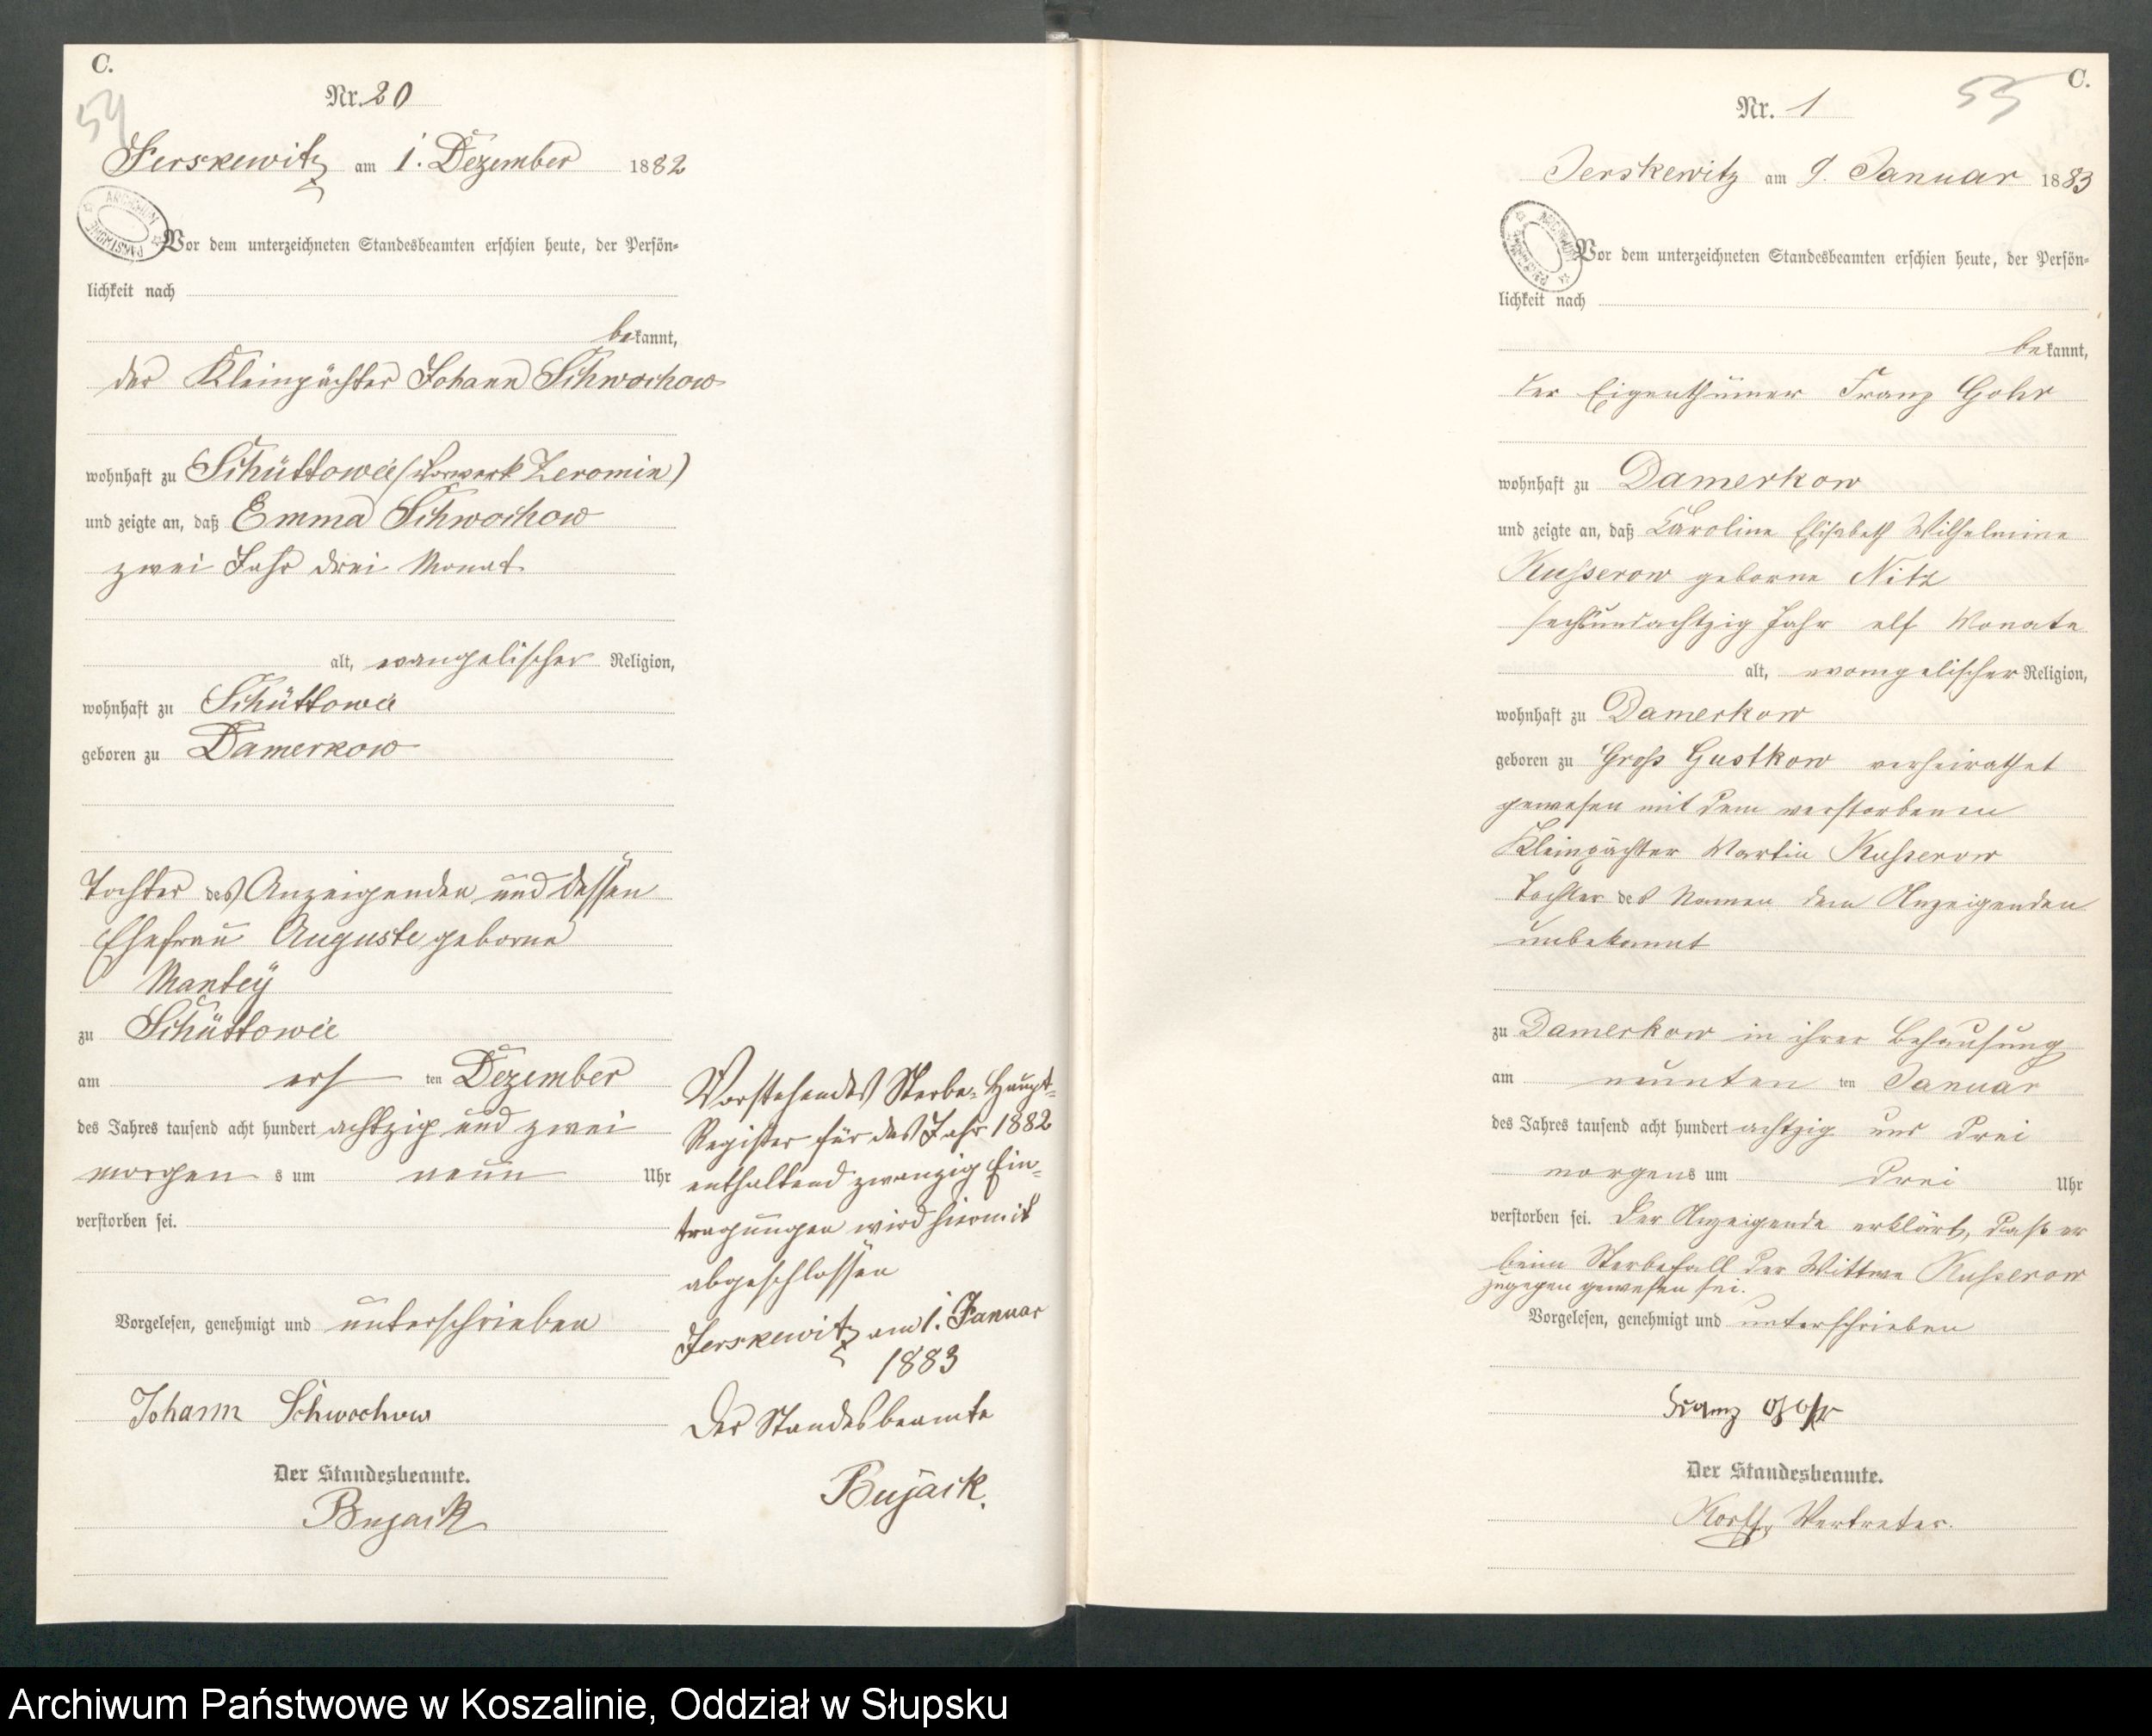 C.
54
Nr. 20
Jerskewitz am 1. Dezember 1882
Vor dem unterzeichneten Standesbeamten erschien heute, der Persön-
lichkeit nach
bekannt,
der Kleinpächter Johann Schwochow
wohnhaft zu Schüttowee (Vorwerk Zeromin)
und zeigte an, daß Emma Schwochow
zwei Jahr drei Monat
alt, evangelischer Religion,
wohnhaft zu Schüttowee
geboren zu Damerkow
Tochter des Anzeigenden und dessen
Ehefrau Auguste geborne
Mantey
zu Schüttowee
am ersten Dezember
des Jahres tausend acht hundert achtzig und zwei
morgens um neun Uhr
verstorben sei.
Vorgelesen, genehmigt und unterschrieben
Johann Schwochow
Der Standesbeamte.
Bujack
Vorstehendes Sterbe-Haupt-
Register für das Jahr 1882
enthaltend zwanzig Ein-
tragungen wird hiermit
abgeschlossen
Jerskewitz am 1. Januar
1883
Der Standesbeamte
Bujack.
C.
55
Nr. 1
Jerskewitz am 9. Januar 1883
ARCHIWUM PAŃSTWOWE
Vor dem unterzeichneten Standesbeamten erschien heute, der Persön-
lichkeit nach
bekannt,
der Eigenthümer Franz Gohr
wohnhaft zu Damerkow
und zeigte an, daß Caroline Elisabeth Wilhelmine
Kusserow geborne Nitz
sechsundachtzig Jahr elf Monate
alt, evangelischer Religion,
wohnhaft zu Damerkow
geboren zu Groß Gustkow verheirathet
gewesen mit dem verstorbenen
Kleinpächter Martin Kusserow
Tochter des Namen dem Anzeigenden
unbekannt
zu Damerkow in ihrer Behausung
am neunten ten Januar
des Jahres tausend acht hundert achtzig und drei
morgens um drei Uhr
verstorben sei. Der Anzeigende erklärt, daß er
beim Sterbefall der Wittwe Kusserow
zugegen gewesen sei.
Vorgelesen, genehmigt und unterschrieben
Franz Gohr
Der Standesbeamte.
Vertreter.
Archiwum Państwowe w Koszalinie, Oddział w Słupsku